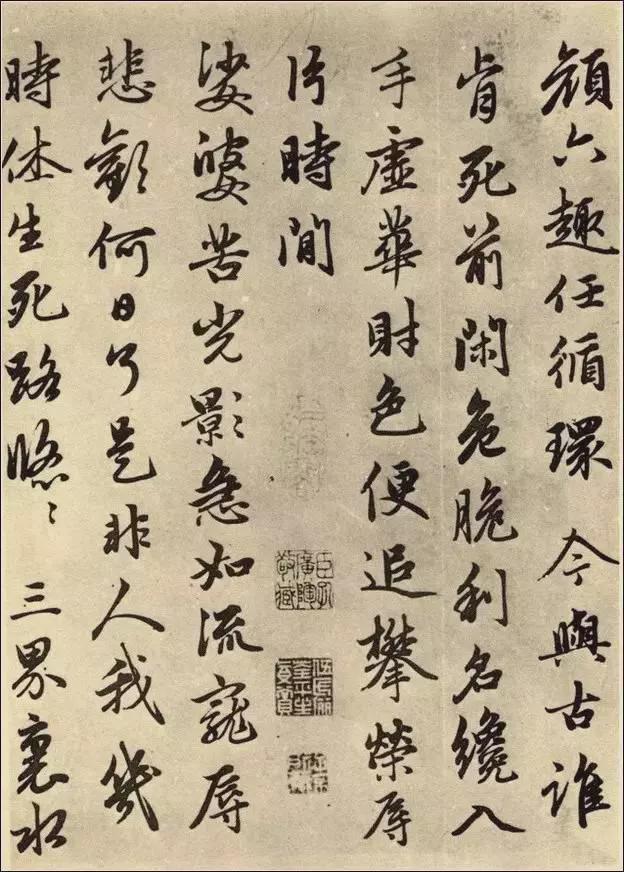 顔六趣任循環 今與古誰
肯死前閑危脆利名纔入
手虛華財色便追攀榮辱
片時間
臣孔廣陶敬藏
娑婆苦光影急如流寵辱
悲歡何日了是非人我幾
時休生死路悠〻 三界裏水